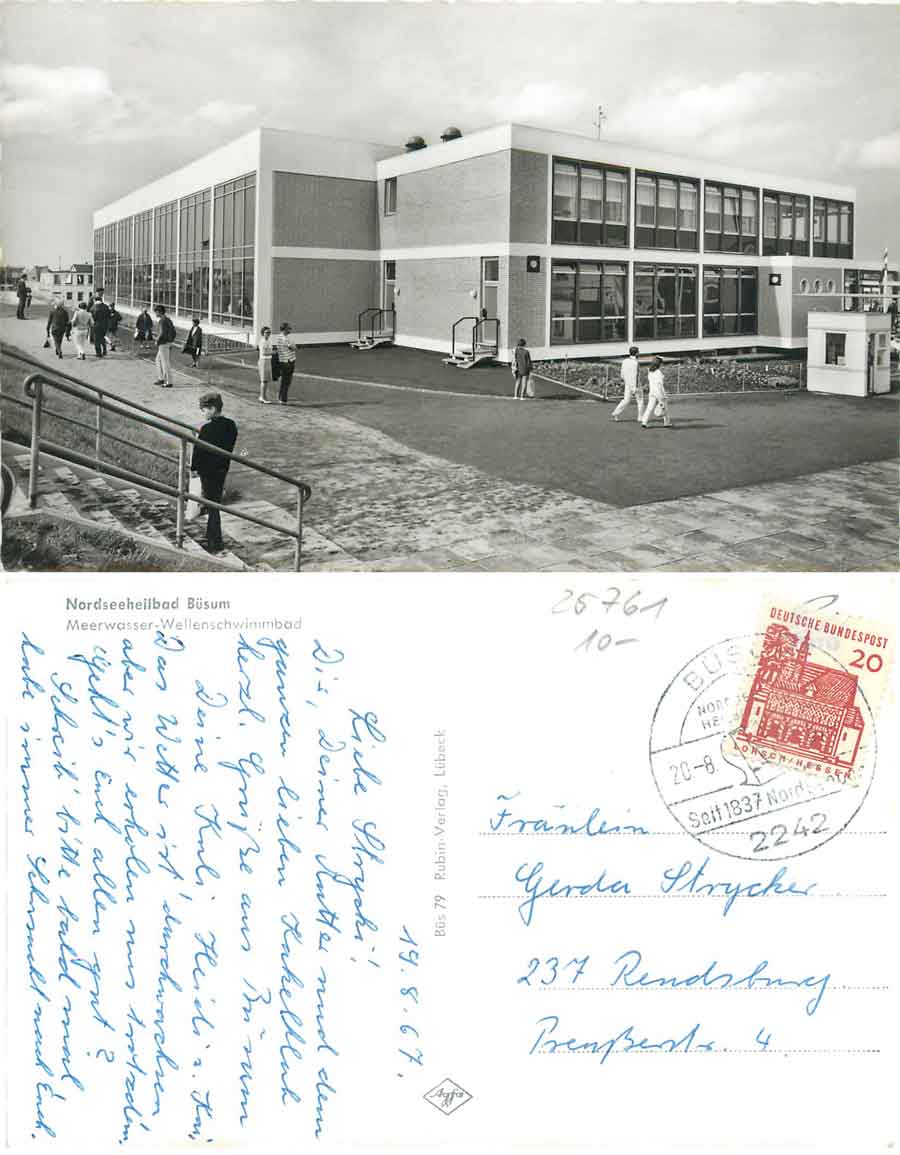 Nordseeheilbad Büsum
Meerwasser-Wellenschwimmbad
19.8.67.
Liebe Strycki!
Dir, Deiner Mutter und dem
ganzen lieben Kakelklub
herzl. Grüße aus Büsum
Deine Heidi u. Kai
Das Wetter ist durchwachsen
aber wir erholen uns trotzdem.
Geht's Euch allen gut?
Schreib' bitte bald mal
habe immer Sehnsucht nach Euch.
Büs 79 Rubin-Verlag, Lübeck
Agfa
25761
10-
DEUTSCHE BUNDESPOST
20
LORSCH/HESSEN
BÜS
20-8.
Seit 1837
2242
Fräulein
Gerda Strycker
237 Rendsburg.
Preußerstr. 4